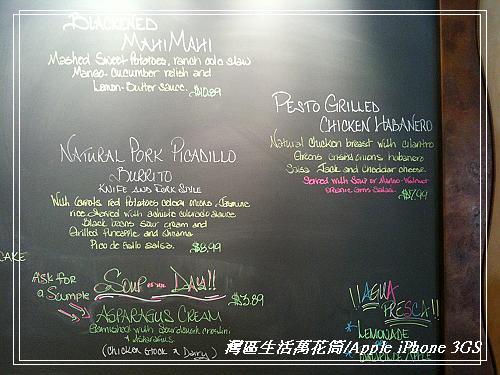 BLACKENED
MAHI MAHI
Mashed Sweet Potatoes, ranch cole slaw
Mango-cucumber relish and
Lemon-Butter sauce. $10.89
PESTO GRILLED
CHICKEN HABANERO
Natural chicken breast with cilantro
onions habanero
Salsa Jack and cheddar cheese
Served with Soup or Mango-Walnut
Organic Greens Salad. $7.99
NATURAL PORK PICADILLO
BURRITO
KNIFE AND FORK STYLE
With Carrots red Potatoes onion, Jasmine
rice served with sauce
Black beans sour cream and
Grilled Pineapple and
Pico de Gallo salsa. $8.99
CAKE
Ask for
a Sample
SOUP OF THE DAY!!
$3.89
ASPARAGUS CREAM
Garnished with Sourdough crostini
& Asparagus
(Chicken Stock & Dairy)
!!AGUA
FRESCA!!
* LEMONADE
*
灣區生活萬花筒/Apple iPhone 3GS